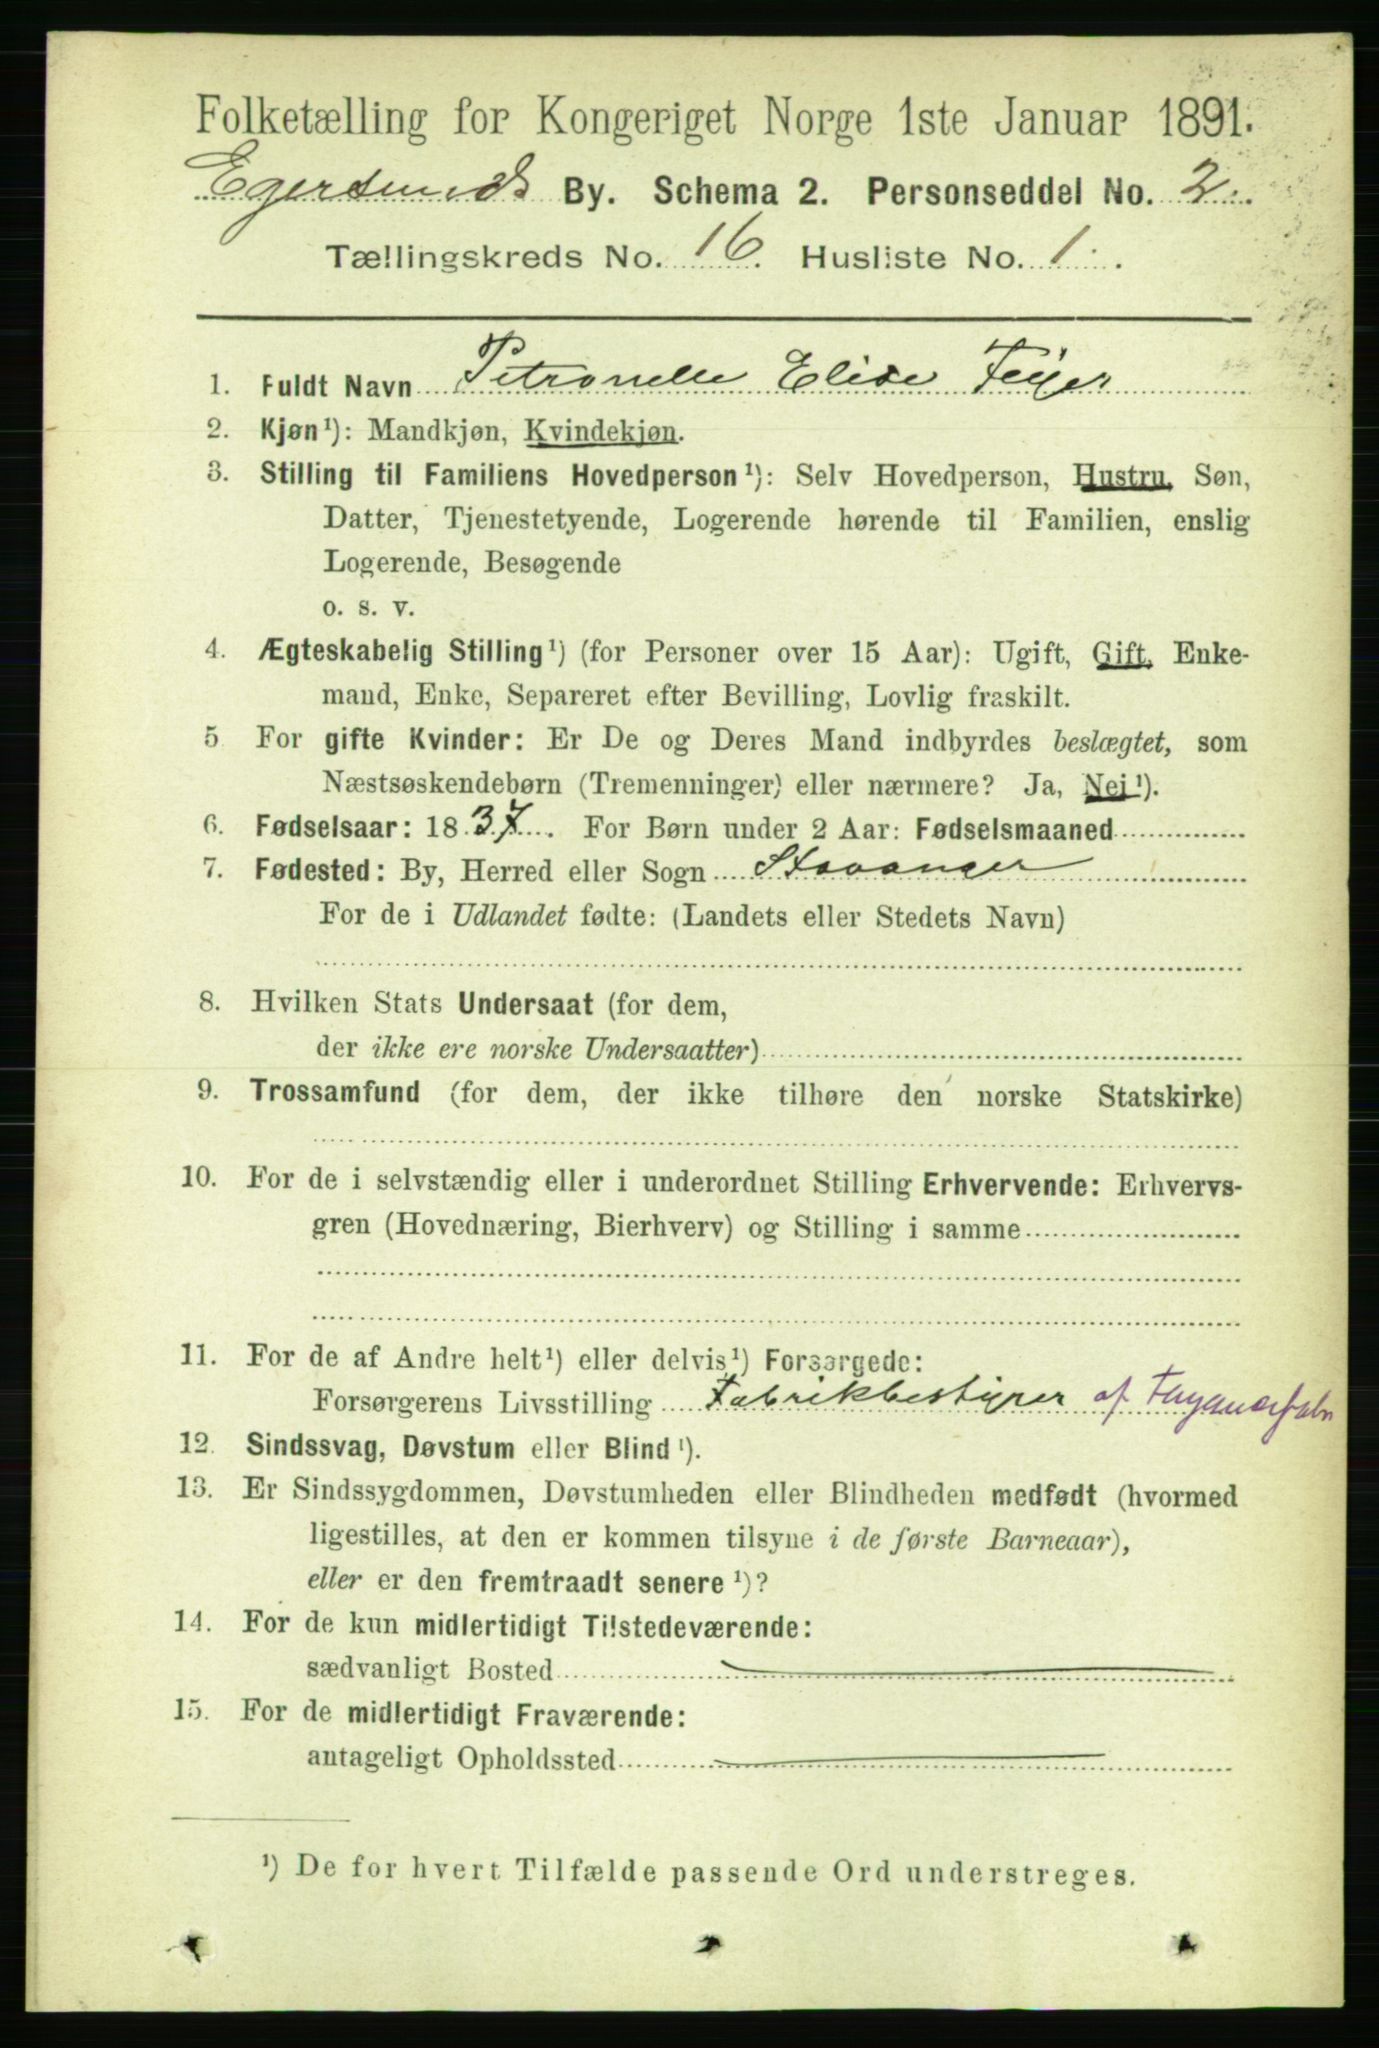 Folketælling for Kongeriget Norge 1ste Januar 1891.
Egersunds By. Schema 2. Personseddel No. 2.
Tællingskreds No. 16. Husliste No. 1.
1. Fuldt Navn Petronelle Elise Feyer
2. Kjøn¹): Mandkjøn, Kvindekjøn.
3. Stilling til Familiens Hovedperson¹): Selv Hovedperson, Hustru, Søn,
Datter, Tjenestetyende, Logerende hørende til Familien, enslig
Logerende, Besøgende
o. s. v.
4. Ægteskabelig Stilling¹) (for Personer over 15 Aar): Ugift, Gift, Enke-
mand, Enke, Separeret efter Bevilling, Lovlig fraskilt.
5 For gifte Kvinder: Er De og Deres Mand indbyrdes beslægtet, som
Næstsøskendebørn (Tremenninger) eller nærmere? Ja, Nei¹).
6. Fødselsaar: 1837. For Børn under 2 Aar: Fødselsmaaned
7. Fødested: By, Herred eller Sogn Stavanger
For de i Udlandet fødte: (Landets eller Stedets Navn)
8. Hvilken Stats Undersaat (for dem,
der ikke ere norske Undersaatter)
9. Trossamfund (for dem, der ikke tilhøre den norske Statskirke)
10. For de i selvstændig eller i underordnet Stilling Erhvervende: Erhvervs-
gren (Hovednæring, Bierhverv) og Stilling i samme
11. For de af Andre helt¹) eller delvis¹) Forsørgede:
Forsørgerens Livsstilling Fabrikbestyrer af
12. Sindssvag, Døvstum eller Blind¹).
13. Er Sindssygdommen, Døvstumheden eller Blindheden medfødt (hvormed
ligestilles, at den er kommen tilsyne i de første Barneaar),
eller er den fremtraadt senere¹)?
14. For de kun midlertidigt Tilstedeværende:
sædvanligt Bosted
15. For de midlertidigt Fraværende:
antageligt Opholdssted
¹) De for hvert Tilfælde passende Ord understreges.